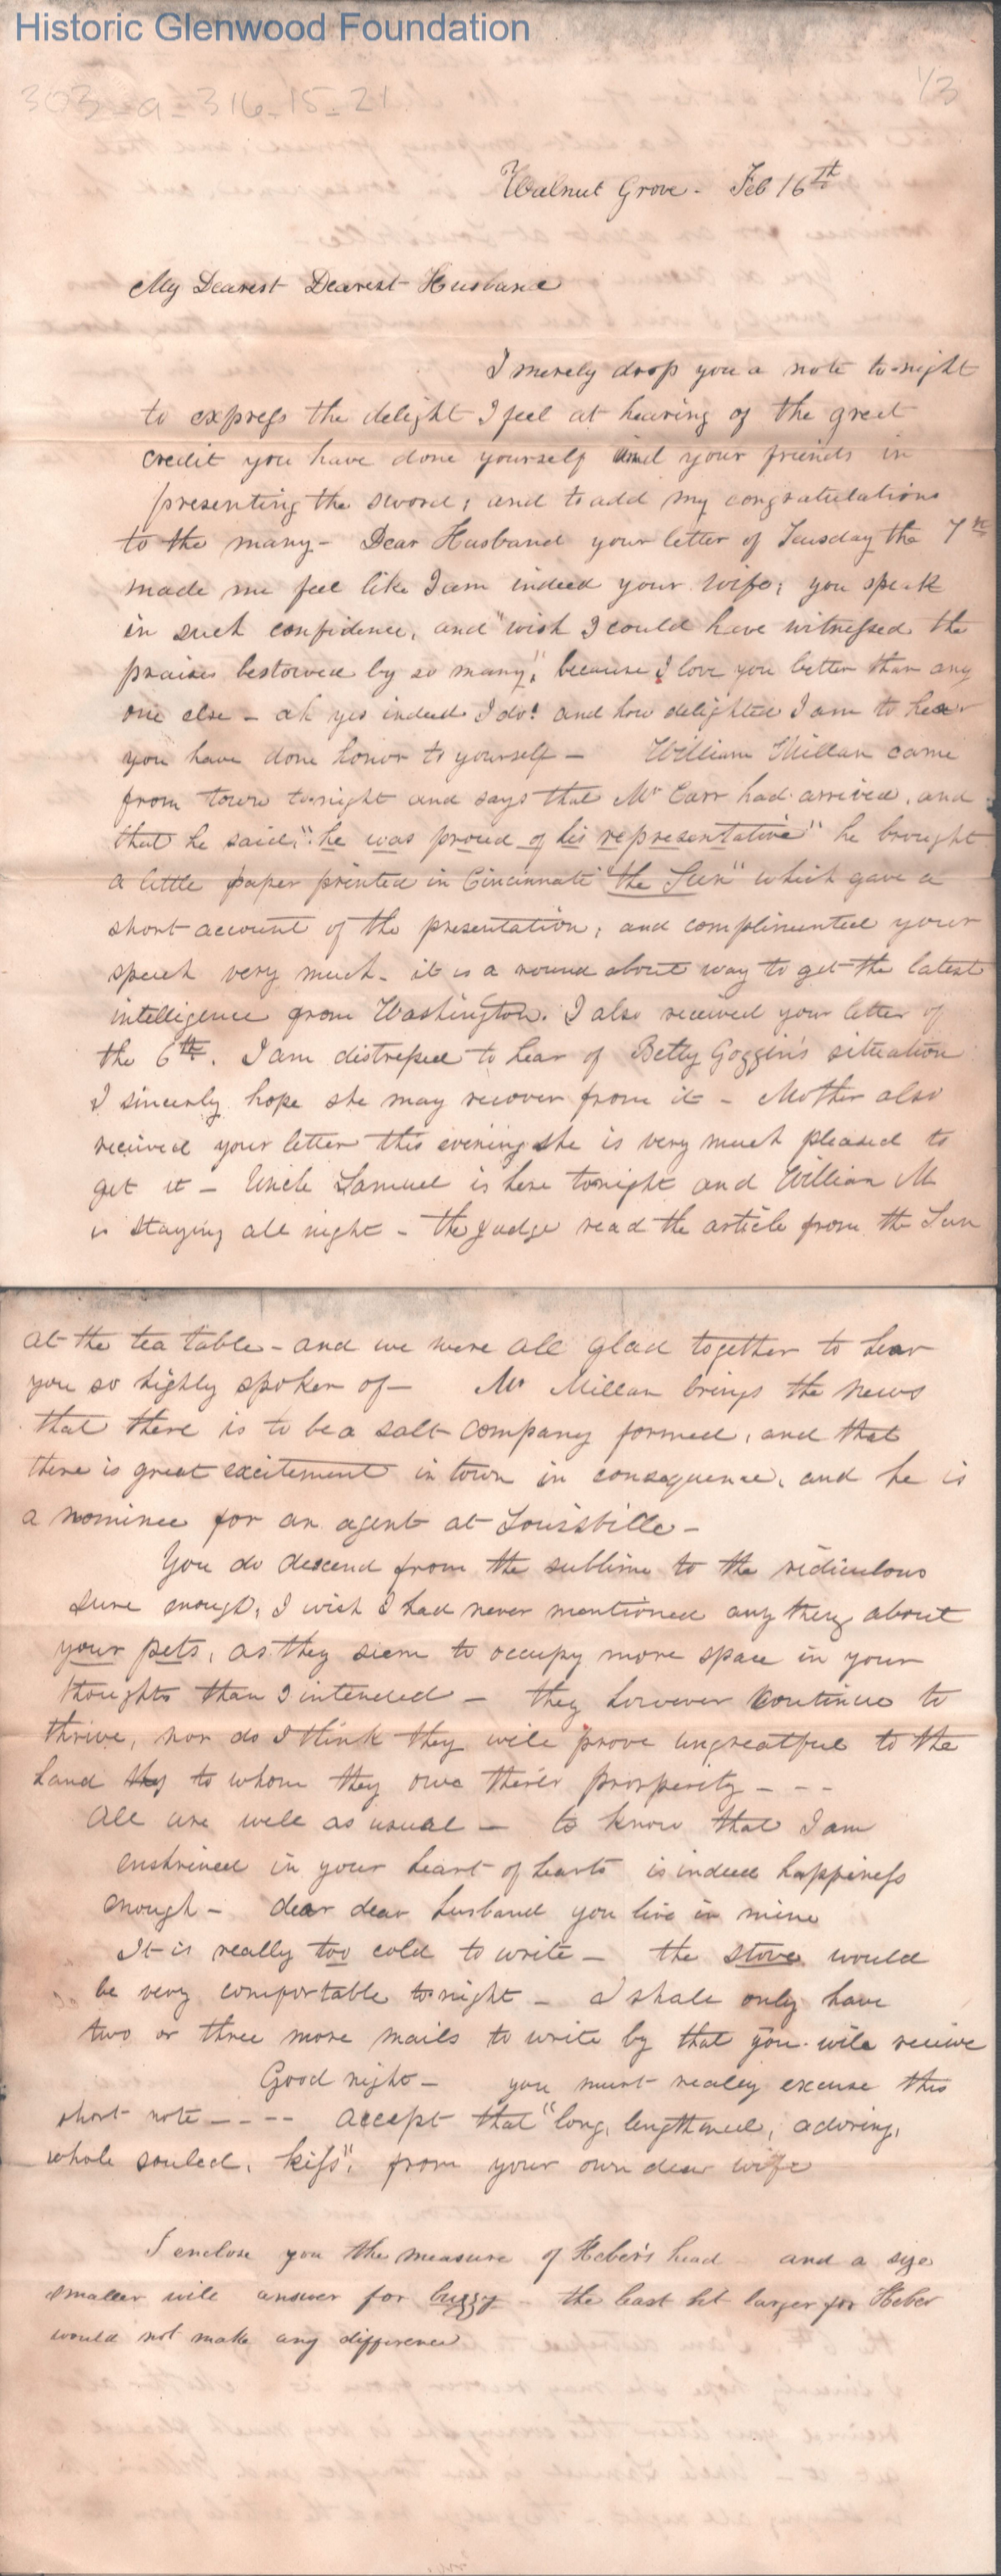 Historic Glenwood Foundation
303-a-316-15-21
1/3
Walnut Grove. Feb 16th
My Dearest Dearest Husband
I merely drop you a note to-night
to express the delight I feel at hearing of the great
credit you have done yourself and your friends in
presenting the sword; and to add my congratulations
to the many - Dear Husband your letter of Tuesday the 7th
made me feel like I am indeed your wife; you speak
in such confidence, and "wish I could have witnessed the
praises bestowed by so many", because I love you better than any
one else - ah yes indeed I do! and how delighted I am to hear
you have done honor to yourself - William Millan came
from town to-night and says that Mr Carr had arrived, and
that he said, "he was proud of his representative" he brought
a little paper printed in Cincinnati "the Sun" which gave a
short account of the presentation; and complimented your
speech very much. it is a round about way to get the latest
intelligence from Washington. I also received your letter of
the 6th. I am distressed to hear of Betty Goggin's situation
I sincerly hope she may recover from it - Mother also
received your letter this evening she is very much pleased to
get it - Uncle Samuel is here tonight and William M
is staying all night - the Judge read the article from the Sun
at the tea table - and we were all glad together to hear
you so highly spoken of - Mr Millan brings the news
that there is to be a salt company formed, and that
there is great excitement in town in consequence, and he is
a nominee for an agent at Louisville -
You do descend from the sublime to the ridiculous
sure enough, I wish I had never mentioned any thing about
your pets, as they seem to occupy more space in your
thoughts than I intended - they however continue to
thrive, nor do I think they will prove ungreatful to the
hand they to whom they owe their prosperity - - -
All are well as usual - to know that I am
enshrined in your heart of hearts is indeed happiness
enough - dear dear husband you live in mine
It is really too cold to write - the stove would
be very comfortable to-night - I shall only have
two or three more mails to write by that you will receive
Good night - you must really excuse this
short note - - - - accept that "long, lengthened, adoring,
whole souled, kiss", from your own dear wife
I enclose you the measure of Heber's head - and a size
smaller will answer for buzzy - the least bit larger for Heber
would not make any difference